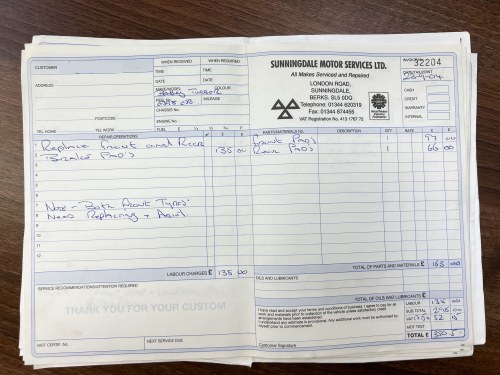 CUSTOMER
WHEN RECEIVED
WHEN REQUIRED
TIME
TIME
DATE
DATE
ADDRESS
MAKE/MODEL
COLOUR
MILEAGE
CHASSIS No.
POSTCODE
ENGINE No.
TEL. HOME
TEL. WORK
FUEL
E
¼
½
¾
F
SUNNINGDALE MOTOR SERVICES LTD.
All Makes Serviced and Repaired
LONDON ROAD,
SUNNINGDALE,
BERKS. SL5 0DQ
Telephone: 01344 620319
Fax: 01344 874455
VAT Registration No. 413 1767 72
INVOICE
32204
CASH
CREDIT
WARRANTY
INTERNAL
REPAIR/OPERATIONS
1 Replace front and Rear 135 00
2 Brake Pads
3
4
5
6
7 Note - Both front Tyres
8 Need Replacing +
9
10
11
12
LABOUR CHARGES £ 135 00
PARTS/MATERIALS No.
DESCRIPTION
QTY
RATE
£
P
Front Pads 1 97 00
Rear Pads 1 66 00
TOTAL OF PARTS AND MATERIALS £ 163 00
OILS AND LUBRICANTS
TOTAL OF OILS AND LUBRICANTS £
SERVICE RECOMMENDATIONS/ATTENTION REQUIRED
THANK YOU FOR YOUR CUSTOM
MOT CERTIF. No.
NEXT SERVICE DUE
I have read and accept your terms and conditions of business. I agree to pay for all
work and materials prior to collection of the vehicle unless satisfactory credit
arrangements have been established.
I understand any estimate is provisional. Any additional work must be authorised by
myself prior to commencement.
Customer Signature
LABOUR 135 00
SUB TOTAL 298 00
VAT 17.5% 52 15
MOT TEST
TOTAL £ 350.15